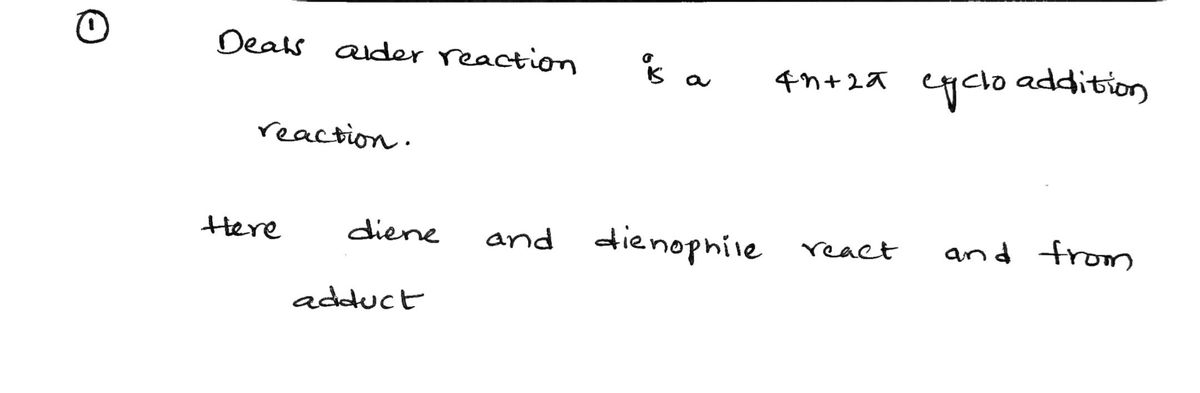 ①
Deals alder reaction is a 4n+2π cyclo addition
reaction.
Here diene and dienophile react and from
adduct